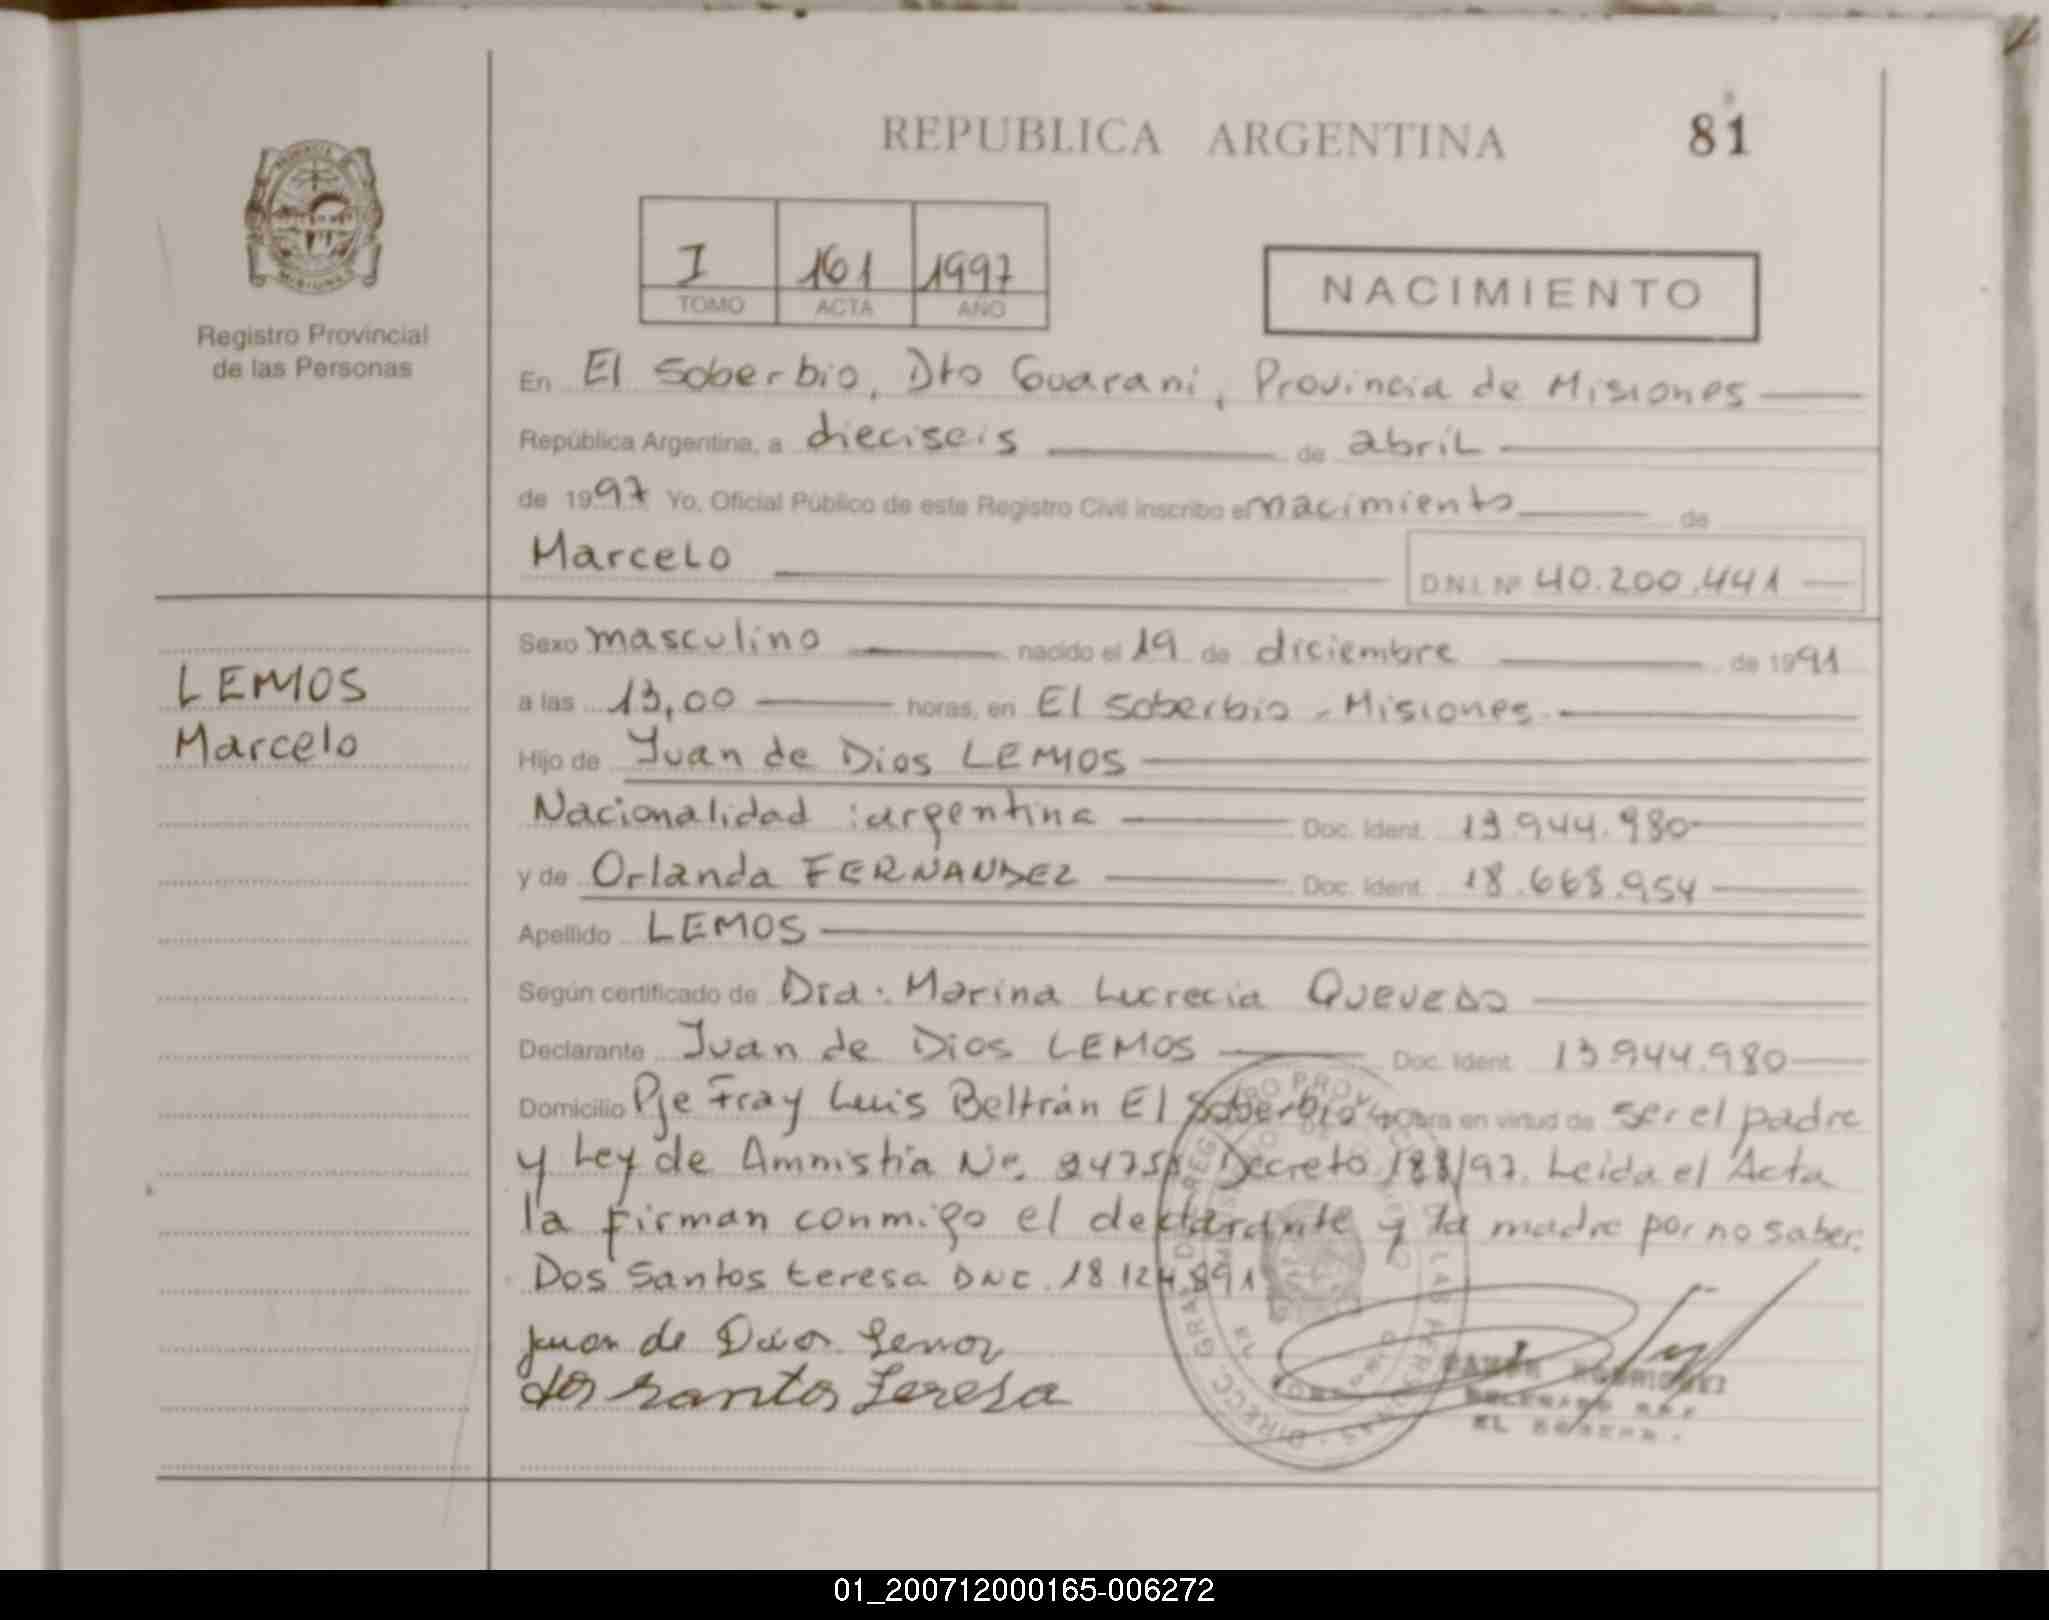 REPUBLICA ARGENTINA
81
Registro Provincial
de las Personas
I 161 1997
TOMO ACTA AÑO
NACIMIENTO
En El Soberbio, Dto Guarani, Provincia de Misiones
República Argentina, a dieciseis de abril
de 1997 Yo, Oficial Público de este Registro Civil inscribo el nacimiento de
Marcelo
D.N.I. Nº 40.200.441
LEMOS
Marcelo
Sexo masculino nacido el 19 de diciembre de 1991
a las 13,00 horas, en El Soberbio - Misiones
Hijo de Juan de Dios LEMOS
Nacionalidad : argentina Doc. Ident. 13.944.980
y de Orlanda FERNANDEZ Doc. Ident. 18.668.954
Apellido LEMOS
Según certificado de Dra. Marina Lucrecia QUEVEDO
Declarante Juan de Dios LEMOS Doc. Ident. 13.944.980
Domicilio Pje Fray Luis Beltrán El Soberbio obra en virtud de ser el padre
y Ley de Amnistia Nº 24755 Decreto 188/97. Leida el Acta
la firman conmigo el declarante y la madre por no saber.
Dos Santos teresa DNI. 18124891
Juan de Dios Lemos
dos santos Teresa
EL SOBERB
01_200712000165-006272